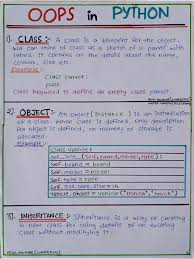 OOPS in PYTHON
1). CLASS :- A class is a blueprint for the object.
We can think of class as a sketch of a parrot with
labels. It contains all the details about the name,
colour, size etc.
Example:-
Class parrot:
pass
Class keyword to define an empty class parrot.
2) OBJECT:- An object (instance) is an instantiation
of a class. When class is defined only description
for object is defined, no memory or storage is
allocated.
Example:-
Class Vehicle:
def __init__(self, brand, model, type):
self.brand = brand
self.model = model
self.type = type
Vehicle_object = Vehicle("Honda",
3). INHERITANCE :- Inheritance is a way of creating
a new class for using details of an existing
class without modifying it.